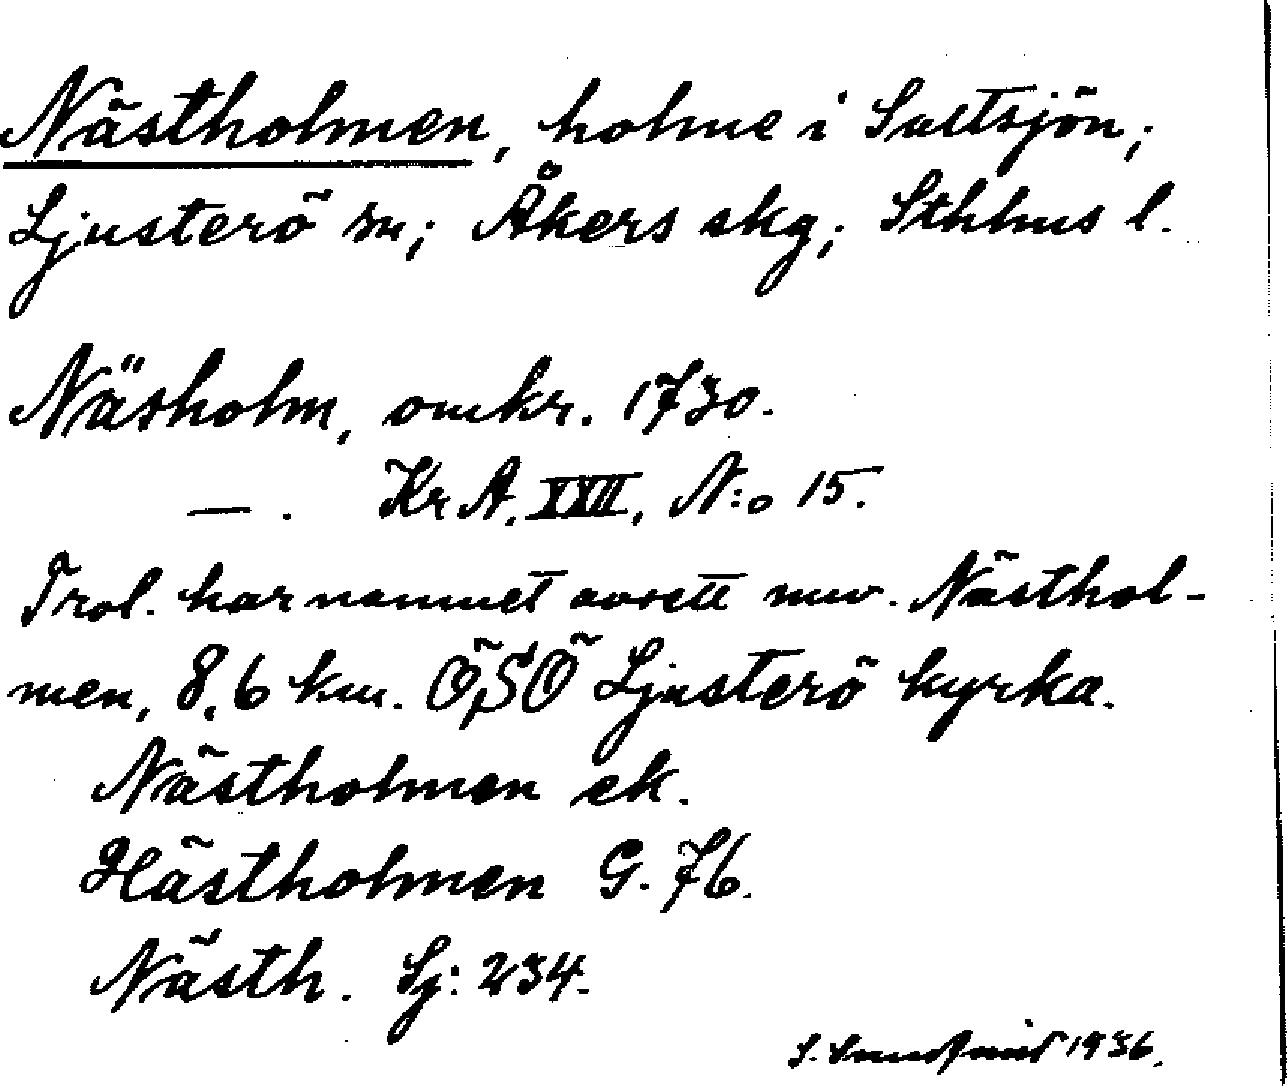 Nästholmen, holme i Saltsjön;
Ljusterö sn; Åkers skg; Sthlms l.
Näsholm, omkr. 1730.
— . KrA. XXII, N:o 15.
Trol. har namnet avsett nuv. Nästhol-
men, 8,6 km. ÖSÖ Ljusterö kyrka.
Nästholmen ek.
Hästholmen G. 76.
Nästh. Sj: 234.
S. 1936.